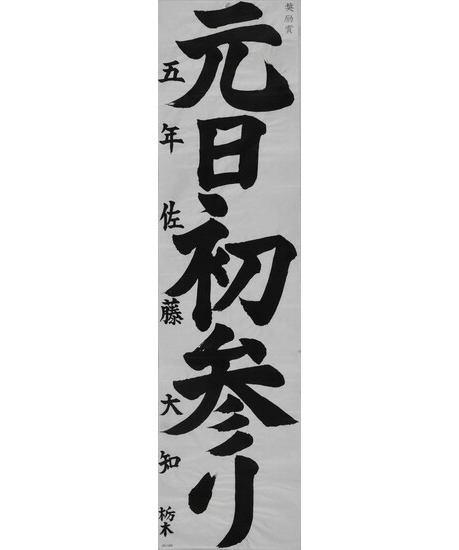 奨励賞
元日初参り
五年佐藤大知
栃木